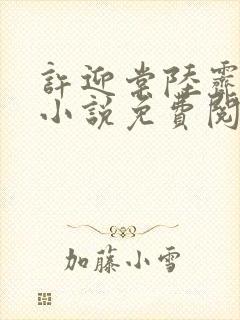 許迎常陸霽
小說免費閱
加藤小雪